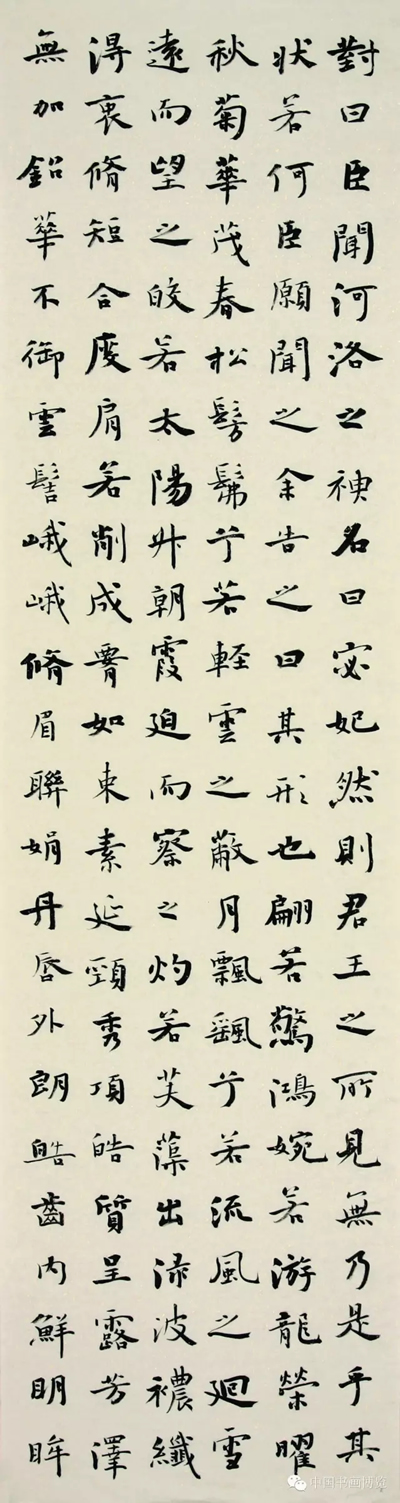 對曰臣聞河洛之神名曰宓妃然則君王之所見無乃是乎其
状若何臣願聞之余告之曰其形也翩若驚鴻婉若游龍榮曜
秋菊華茂春松髣髴兮若輕雲之蔽月飄颻兮若流風之迴雪
遠而望之皎若太陽升朝霞迫而察之灼若芙蕖出渌波襛纖
得衷脩短合度肩若削成腰如束素延頸秀項皓質呈露芳澤
無加鉛華不御雲髻峨峨脩眉聯娟丹唇外朗皓齒内鮮明眸
中国书画博览